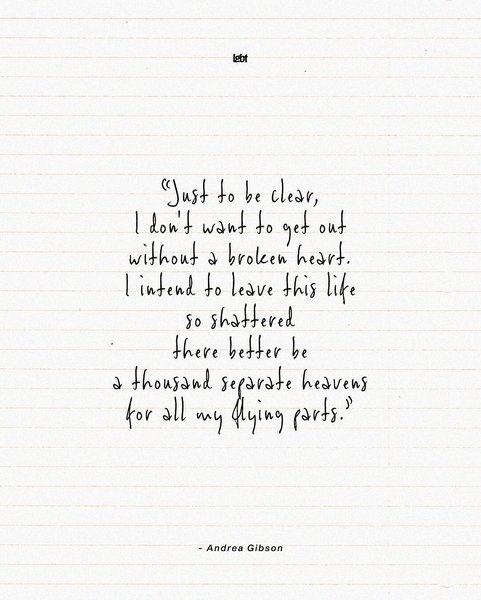 “Just to be clear,
I don't want to get out
without a broken heart.
I intend to leave this life
so shattered
there better be
a thousand separate heavens
for all my flying parts.”
- Andrea Gibson